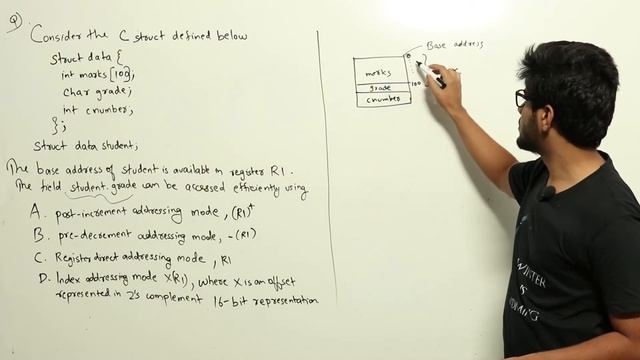 Q)
Consider the C struct defined below
struct data {
int marks [100];
char grade;
int cnumber;
};
struct data student;
The base address of student is available in register R1.
The field student.grade can be accessed efficiently using
A. post-increment addressing mode, (R1)+
B. pre-decrement addressing mode, -(R1)
C. Register direct addressing mode, R1
D. Index addressing mode X(R1), where X is an offset
represented in 2's complement 16-bit representation
Base address
0
marks
100
grade
cnumber
WINTER
IS
COMING